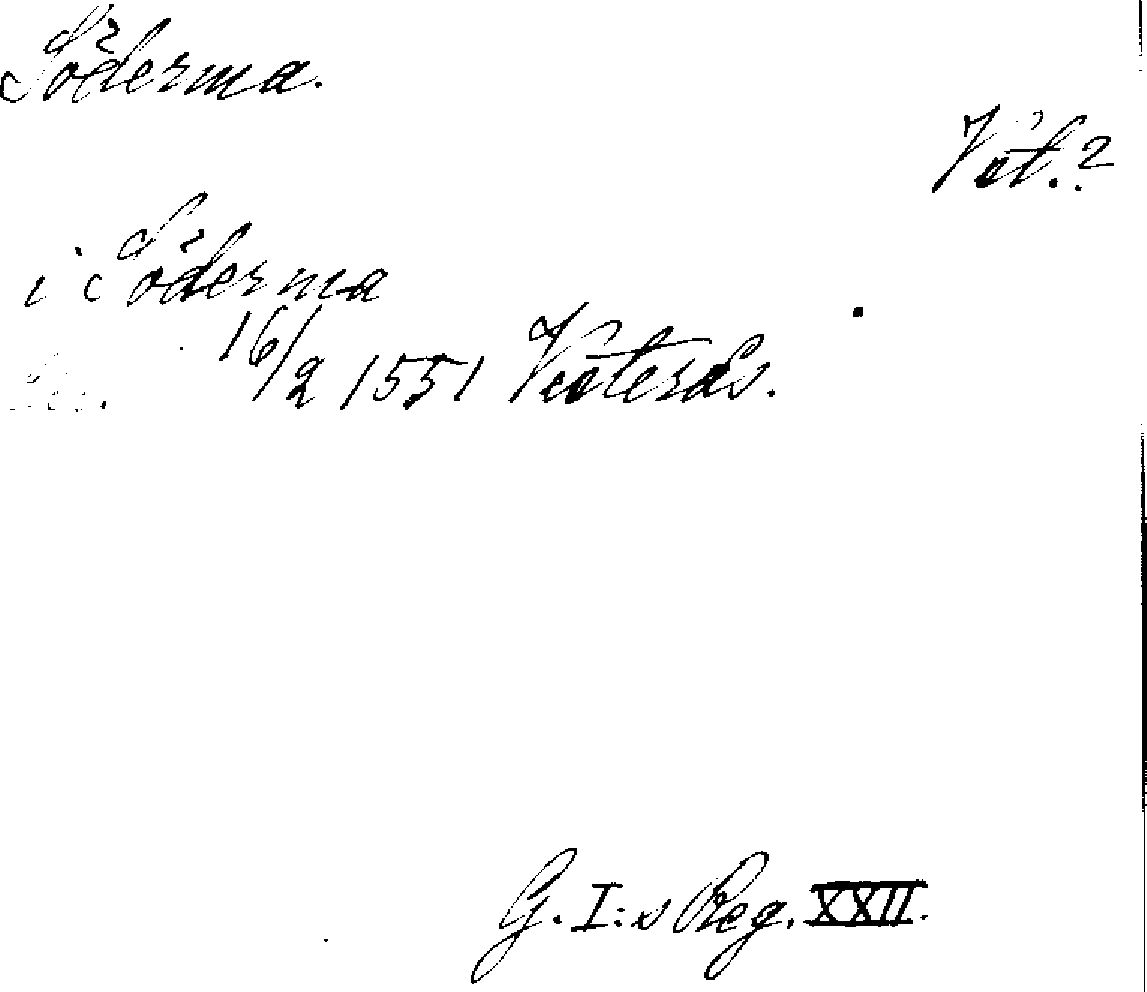 Söderma.
Vät.?
i Söderma
16/2 1551 Västerås.
G. I:s Reg. XXII.